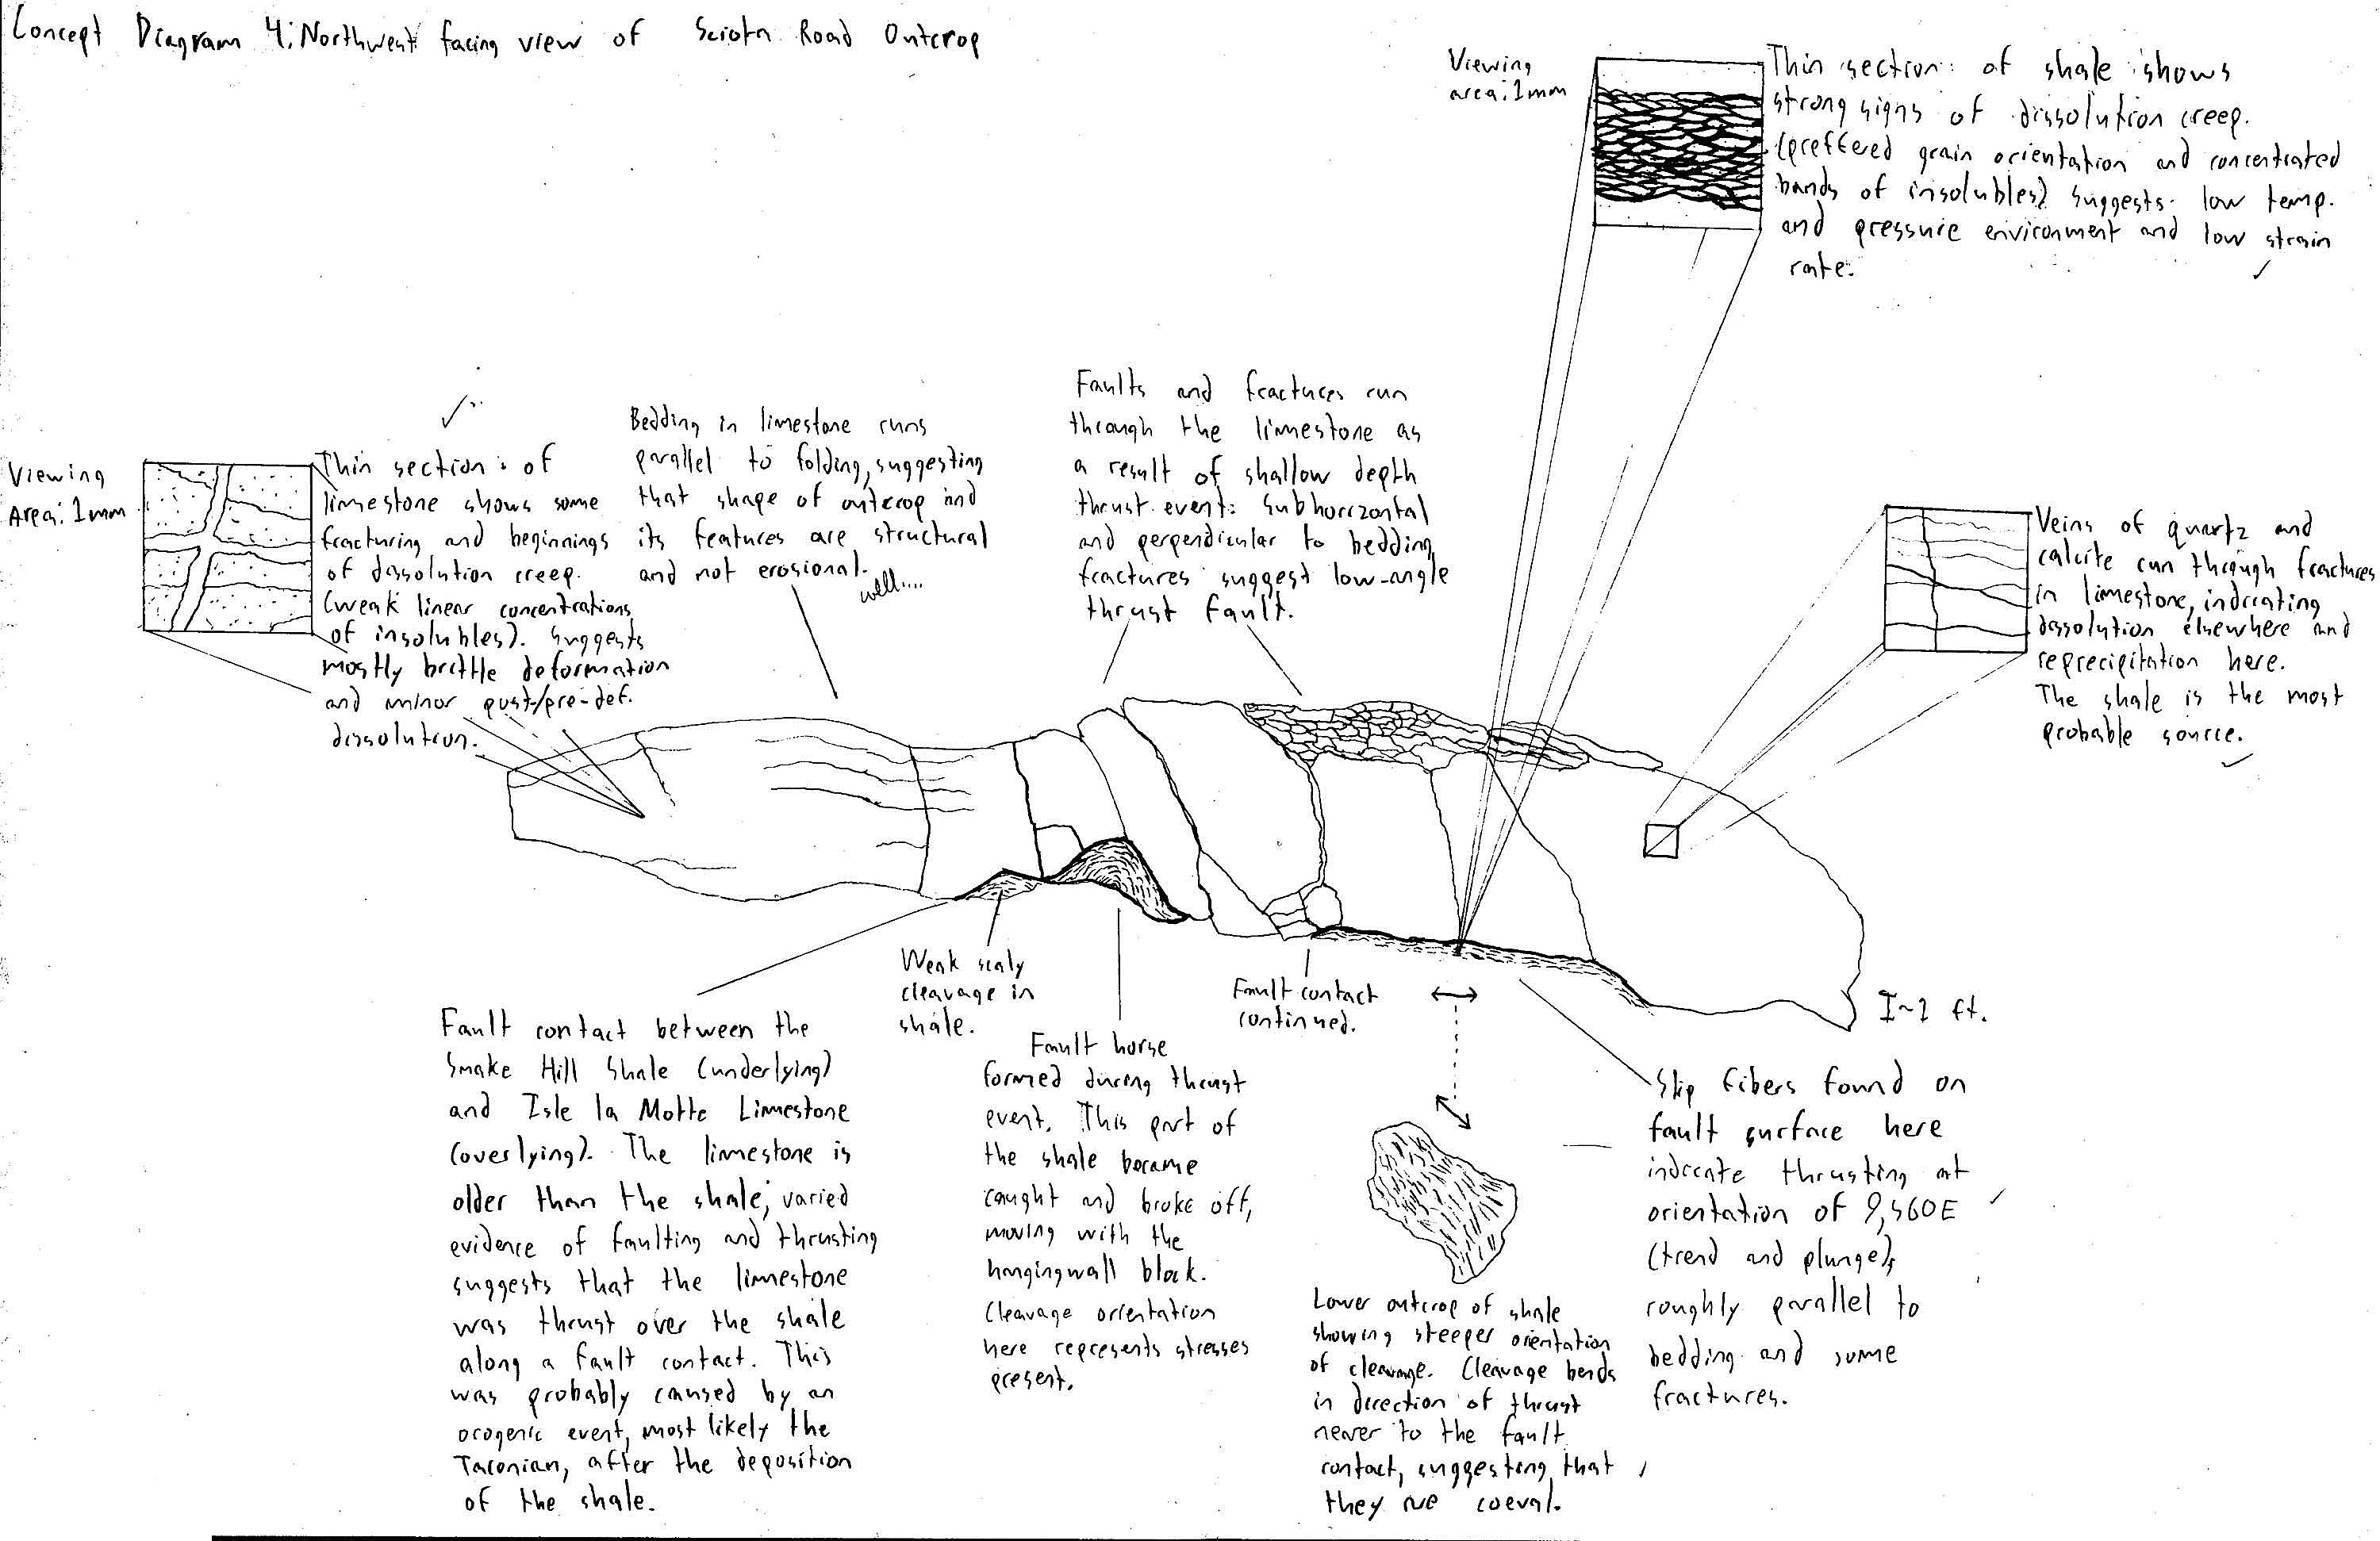 Concept Diagram 4: Northwest facing view of Sciota Road Outcrop
Viewing
area: 1mm
Thin section: of shale shows
strong signs of dissolution creep.
(preffered grain orientation and concentrated
bands of insolubles) suggests low temp.
and pressure environment and low strain
rate.
Viewing
Area: 1mm
Thin section: of
limestone shows some
fracturing and beginnings
of dissolution creep.
(weak linear concentrations
of insolubles). Suggests
mostly brittle deformation
and minor post-/pre-def.
dissolution.
Bedding in limestone runs
parallel to folding, suggesting
that shape of outcrop and
its features are structural
and not erosional.
well....
Faults and fractures run
through the limestone as
a result of shallow depth
thrust event: Subhorizontal
and perpendicular to bedding
fractures suggest low-angle
thrust fault.
Veins of quartz and
calcite run through fractures
in limestone, indicating
dissolution elsewhere and
reprecipitation here.
The shale is the most
probable source.
I~1 ft.
Fault contact between the
Snake Hill Shale (underlying)
and Isle la Motte Limestone
(overlying). The limestone is
older than the shale; varied
evidence of faulting and thrusting
suggests that the limestone
was thrust over the shale
along a fault contact. This
was probably caused by an
orogenic event, most likely the
Taconian, after the deposition
of the shale.
Weak scaly
cleavage in
shale.
Fault horse
formed during thrust
event. This part of
the shale became
caught and broke off,
moving with the
hangingwall block.
Cleavage orientation
here represents stresses
present.
Fault contact
continued.
Lower outcrop of shale
showing steeper orientation
of cleavage. Cleavage bends
in direction of thrust
nearer to the fault
contact, suggesting that
they are coeval.
Slip fibers found on
fault surface here
indicate thrusting at
orientation of 9, S60E
(trend and plunge),
roughly parallel to
bedding and some
fractures.